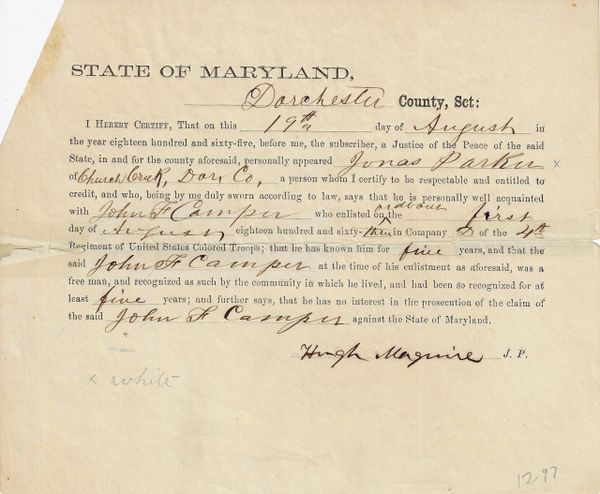 STATE OF MARYLAND,
Dorchester County, Sct:
I HEREBY CERTIFY, That on this 19th day of August in
the year eighteen hundred and sixty-five, before me, the subscriber, a Justice of the Peace of the said
State, in and for the county aforesaid, personally appeared Jonas Parker x
of Church Creek, Dor, Co, a person whom I certify to be respectable and entitled to
credit, and who, being by me duly sworn according to law, says that he is personally well acquainted
with John F Camper who enlisted on or about the first
day of August eighteen hundred and sixty-three in Company D of the 4th
Regiment of United States Colored Troops; that he has known him for five years, and that the
said John F Camper at the time of his enlistment as aforesaid, was a
free man, and recognized as such by the community in which he lived, and had been so recognized for at
least five years; and further says, that he has no interest in the prosecution of the claim of
the said John F Camper against the State of Maryland.
Hugh Maguire J. P.
x white
1297